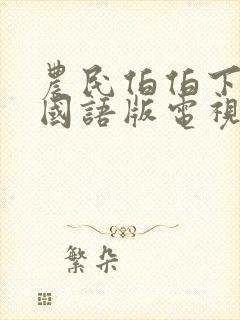 農民伯伯下
國語版電視
繁朵